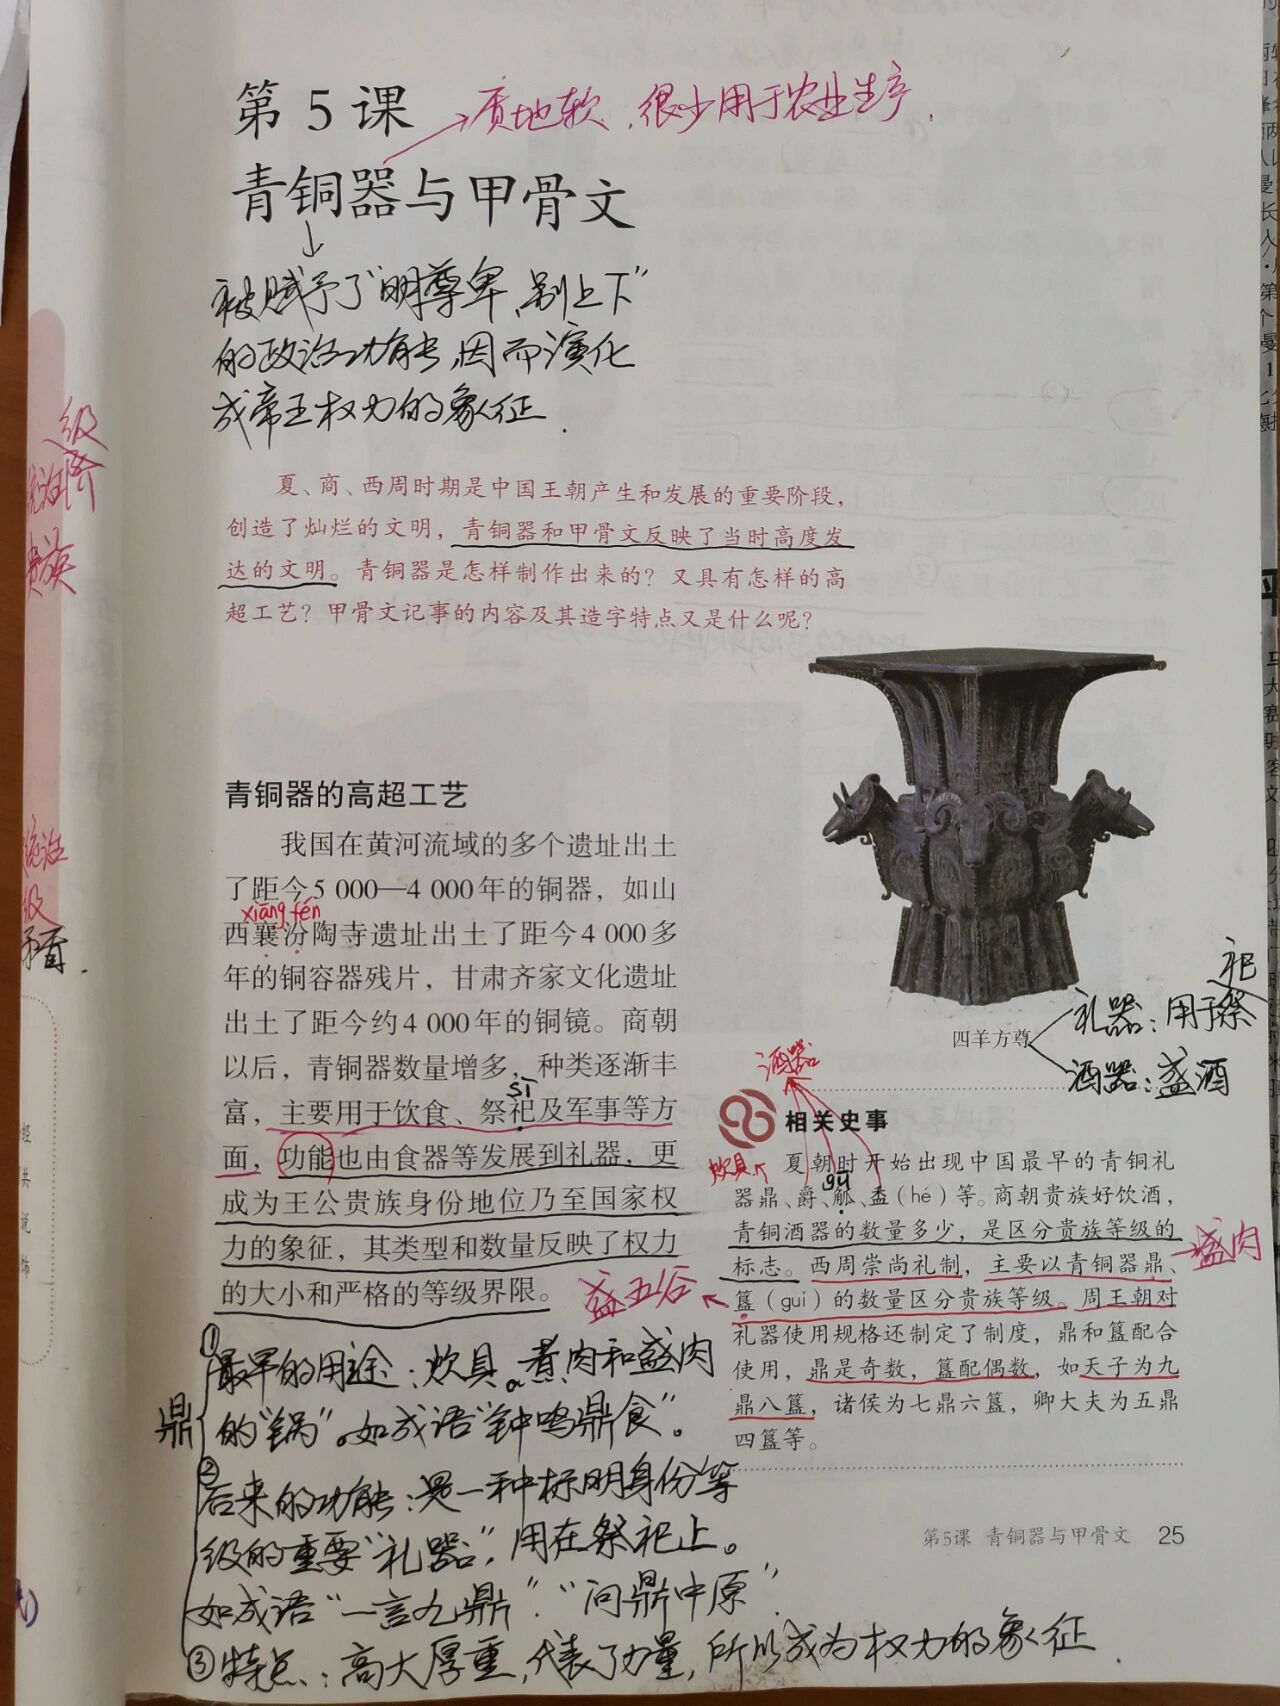 第5课
→质地软,很少用于农业生产.
青铜器与甲骨文
↓
被赋予了"明尊卑,别上下"
的政治功能,因而演化
成帝王权力的象征.
级
统治阶
贵族
夏、商、西周时期是中国王朝产生和发展的重要阶段，
创造了灿烂的文明，青铜器和甲骨文反映了当时高度发
达的文明。青铜器是怎样制作出来的？又具有怎样的高
超工艺？甲骨文记事的内容及其造字特点又是什么呢？
青铜器的高超工艺
我国在黄河流域的多个遗址出土
了距今5 000—4 000年的铜器，如山
xiāng fén
西襄汾陶寺遗址出土了距今4 000多
年的铜容器残片，甘肃齐家文化遗址
出土了距今约4 000年的铜镜。商朝
以后，青铜器数量增多，种类逐渐丰
sì
富，主要用于饮食、祭祀及军事等方
面，功能也由食器等发展到礼器，更
成为王公贵族身份地位乃至国家权
力的象征，其类型和数量反映了权力
的大小和严格的等级界限。
统治
级
矛盾.
四羊方尊
祀
礼器:用于祭
酒器:盛酒
酒器
相关史事
炊具
gū
夏朝时开始出现中国最早的青铜礼
器鼎、爵、觚、盉(hé)等。商朝贵族好饮酒，
青铜酒器的数量多少，是区分贵族等级的
标志。西周崇尚礼制，主要以青铜器鼎、
盛肉
簋(guǐ)的数量区分贵族等级。周王朝对
盛五谷
礼器使用规格还制定了制度，鼎和簋配合
使用，鼎是奇数，簋配偶数，如天子为九
鼎八簋，诸侯为七鼎六簋，卿大夫为五鼎
四簋等。
鼎
①最早的用途:炊具。煮肉和盛肉
的"锅"。如成语"钟鸣鼎食"。
②后来的功能:是一种标明身份等
级的重要"礼器",用在祭祀上。
如成语"一言九鼎"."问鼎中原"
③特点:高大厚重,代表了力量,所以成为权力的象征.
第5课 青铜器与甲骨文 25